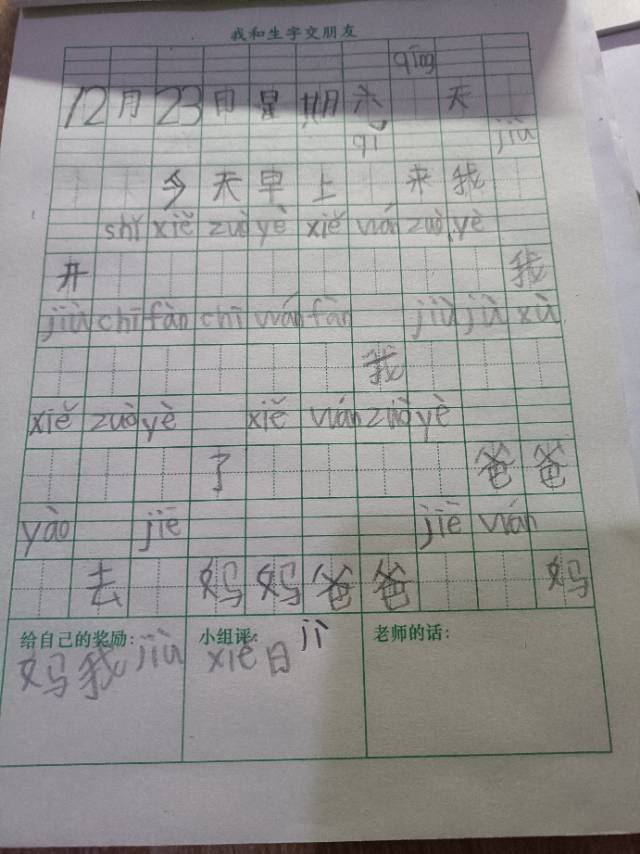 我和生字交朋友
qīng
12月23日星期六 天
qǐ jiù
今天早上 来我
shǐ xiě zuò yè xiě wán zuò yè
开 我
jiù chī fàn chī wán fàn jiù jì xù
我
xiě zuò yè xiě wán zuò yè
了 爸爸
yào jiē jiē wán
去 妈妈爸爸 妈
给自己的奖励: 小组评: 老师的话:
妈我jiù xiě日jì